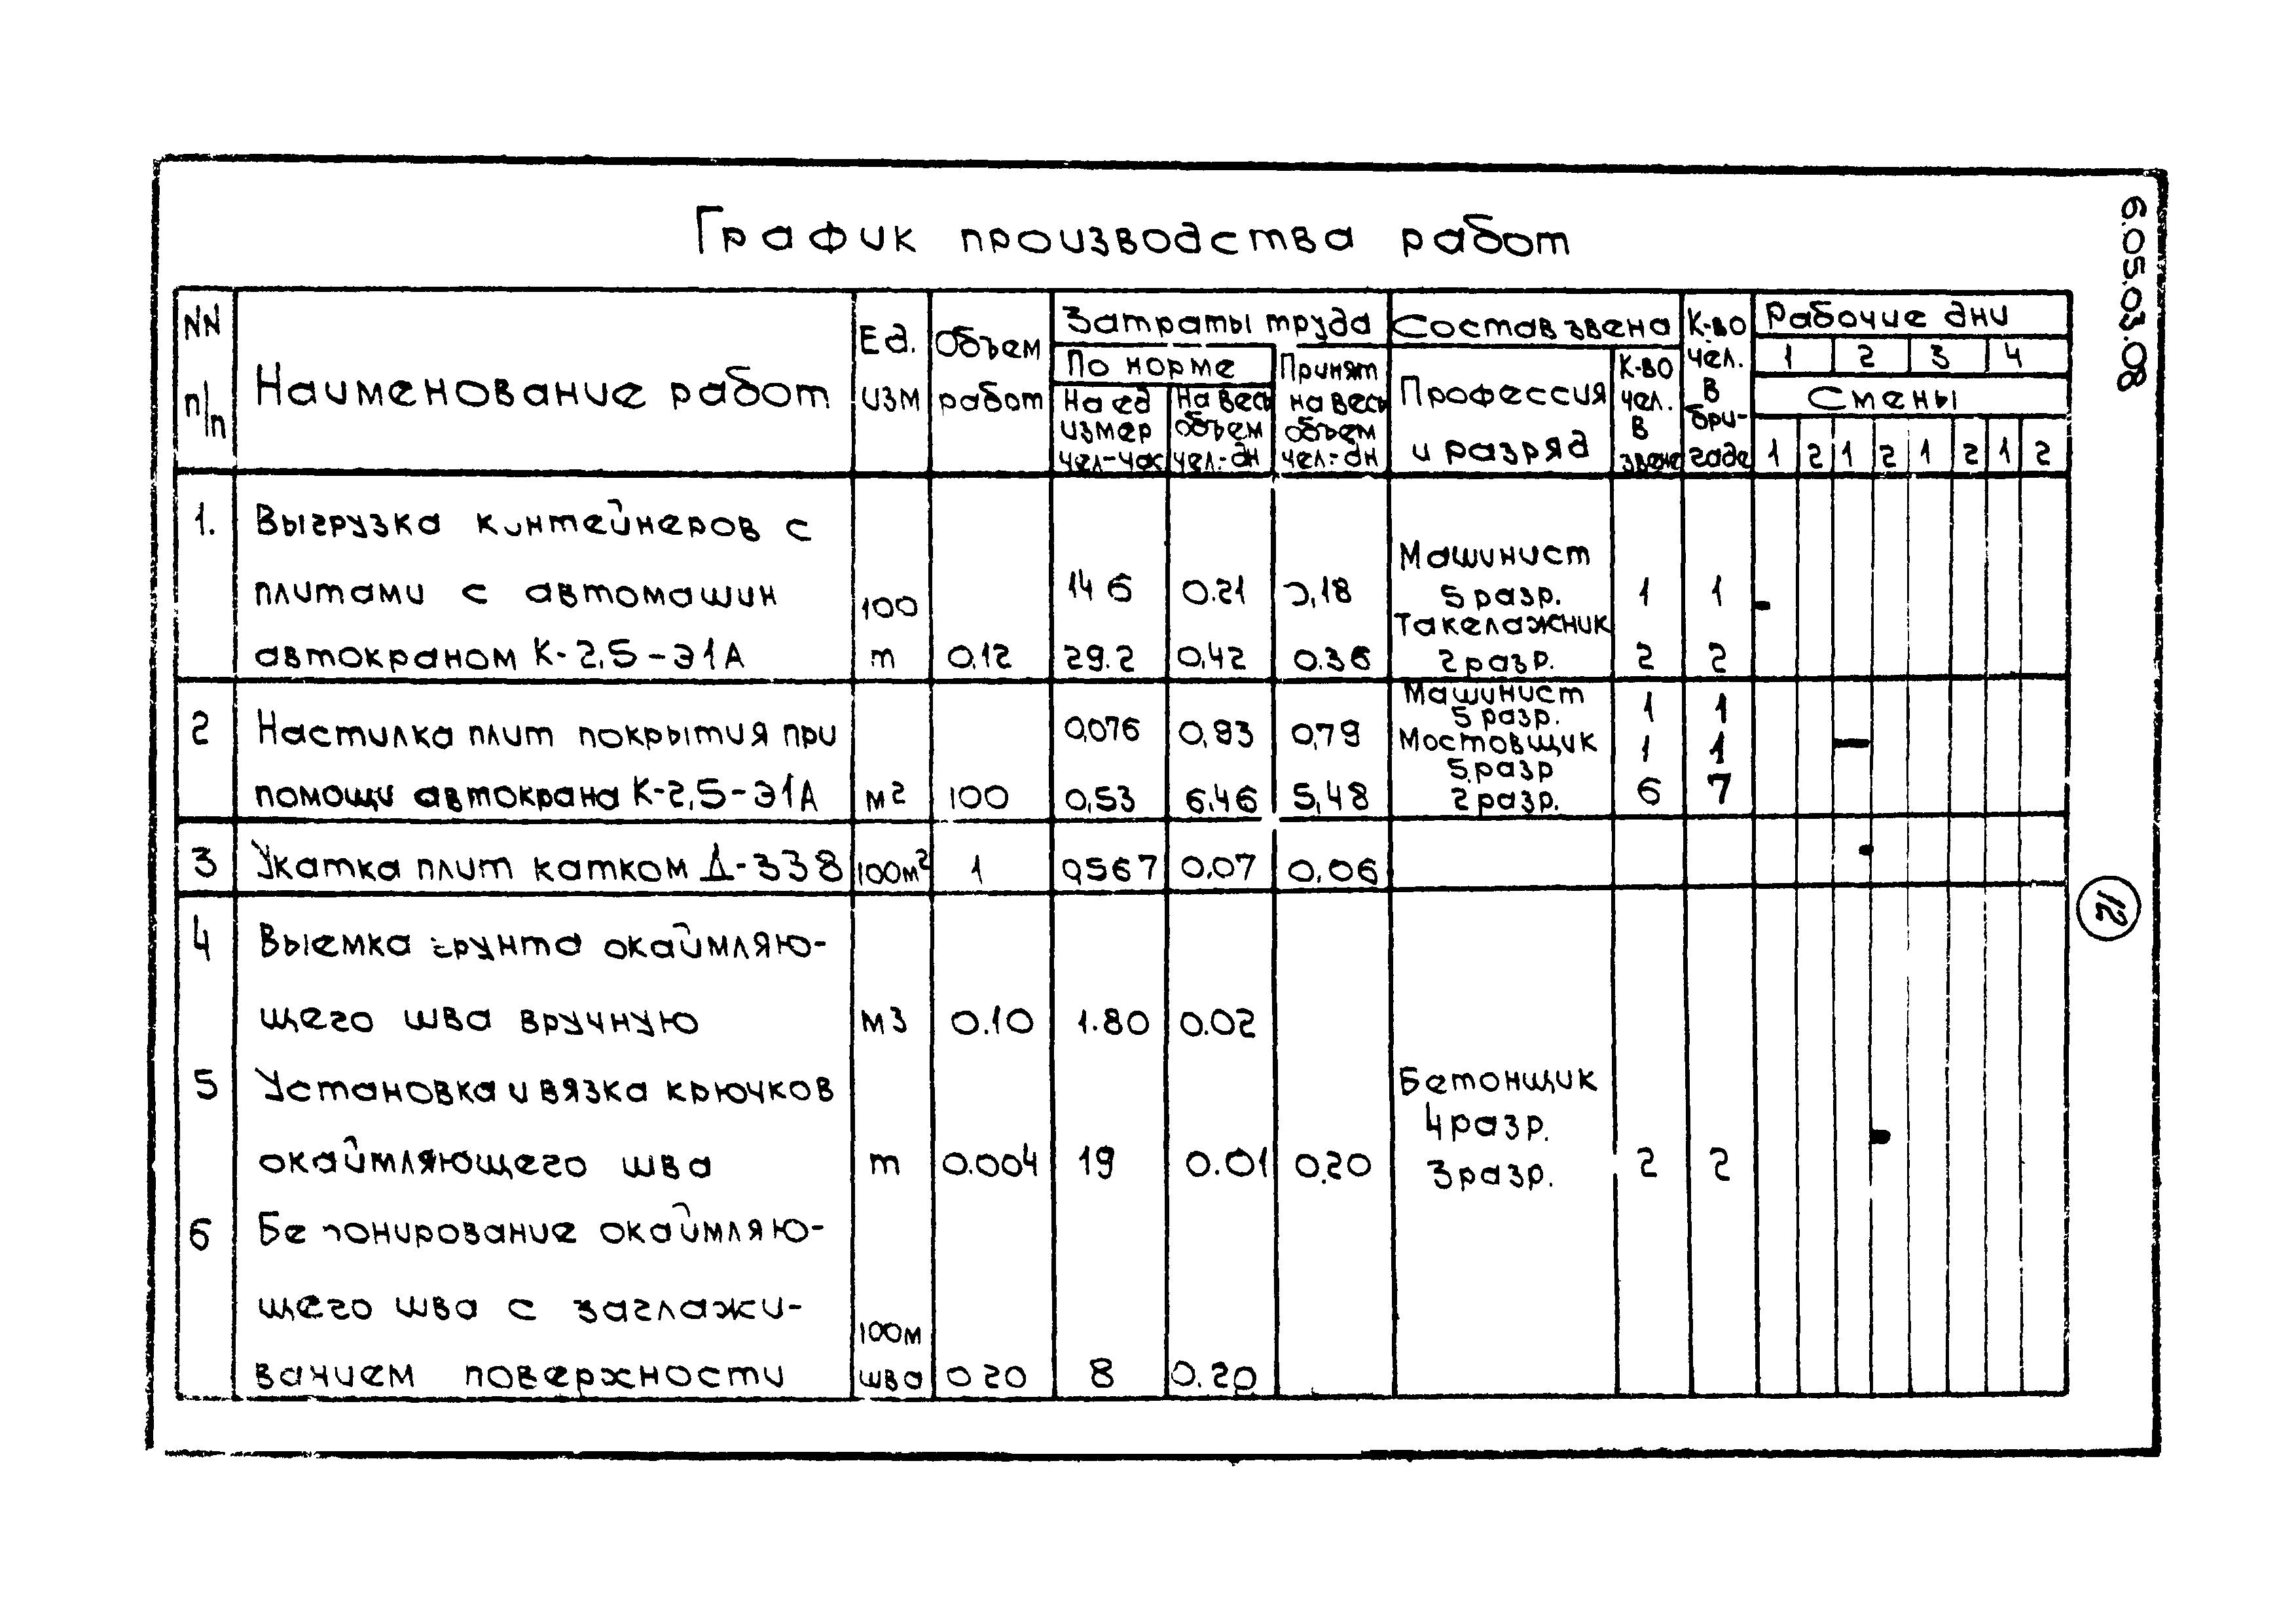 График производства работ
6.05.03.08
NN п/п
Наименование работ
Ед. изм
Объем работ
Затраты труда
По норме
На ед измер чел-час
На весь объем чел.-дн
Принят на весь объем чел.-дн
Состав звена
Профессия и разряд
К-во чел. в звене
К-во чел. в бригаде
Рабочие дни
1 2 3 4
Смены
1 2 1 2 1 2 1 2
1. Выгрузка контейнеров с
Машинист
плитами с автомашин 14 6 0.21 0,18 5 разр. 1 1
100
Такелажник
автокраном К-2,5-Э1А т 0.12 29.2 0,42 0.36 2 разр. 2 2
Машинист
5 разр. 1 1
2 Настилка плит покрытия при 0,076 0,93 0,79 Мостовщик 1 1
5 разр
помощи автокрана К-2,5-Э1А м2 100 0,53 6.46 5,48 2 разр. 6 7
3 Укатка плит катком Д-338 100м2 1 0,567 0,07 0,06
4 Выемка грунта окаймляю-
щего шва вручную м3 0.10 1.80 0.02
5 Установка и вязка крючков Бетонщик
4 разр.
окаймляющего шва т 0.004 19 0.01 0,20 3 разр. 2 2
6 Бетонирование окаймляю-
щего шва с заглажи-
100м
ванием поверхности шва 0 20 8 0.20
12